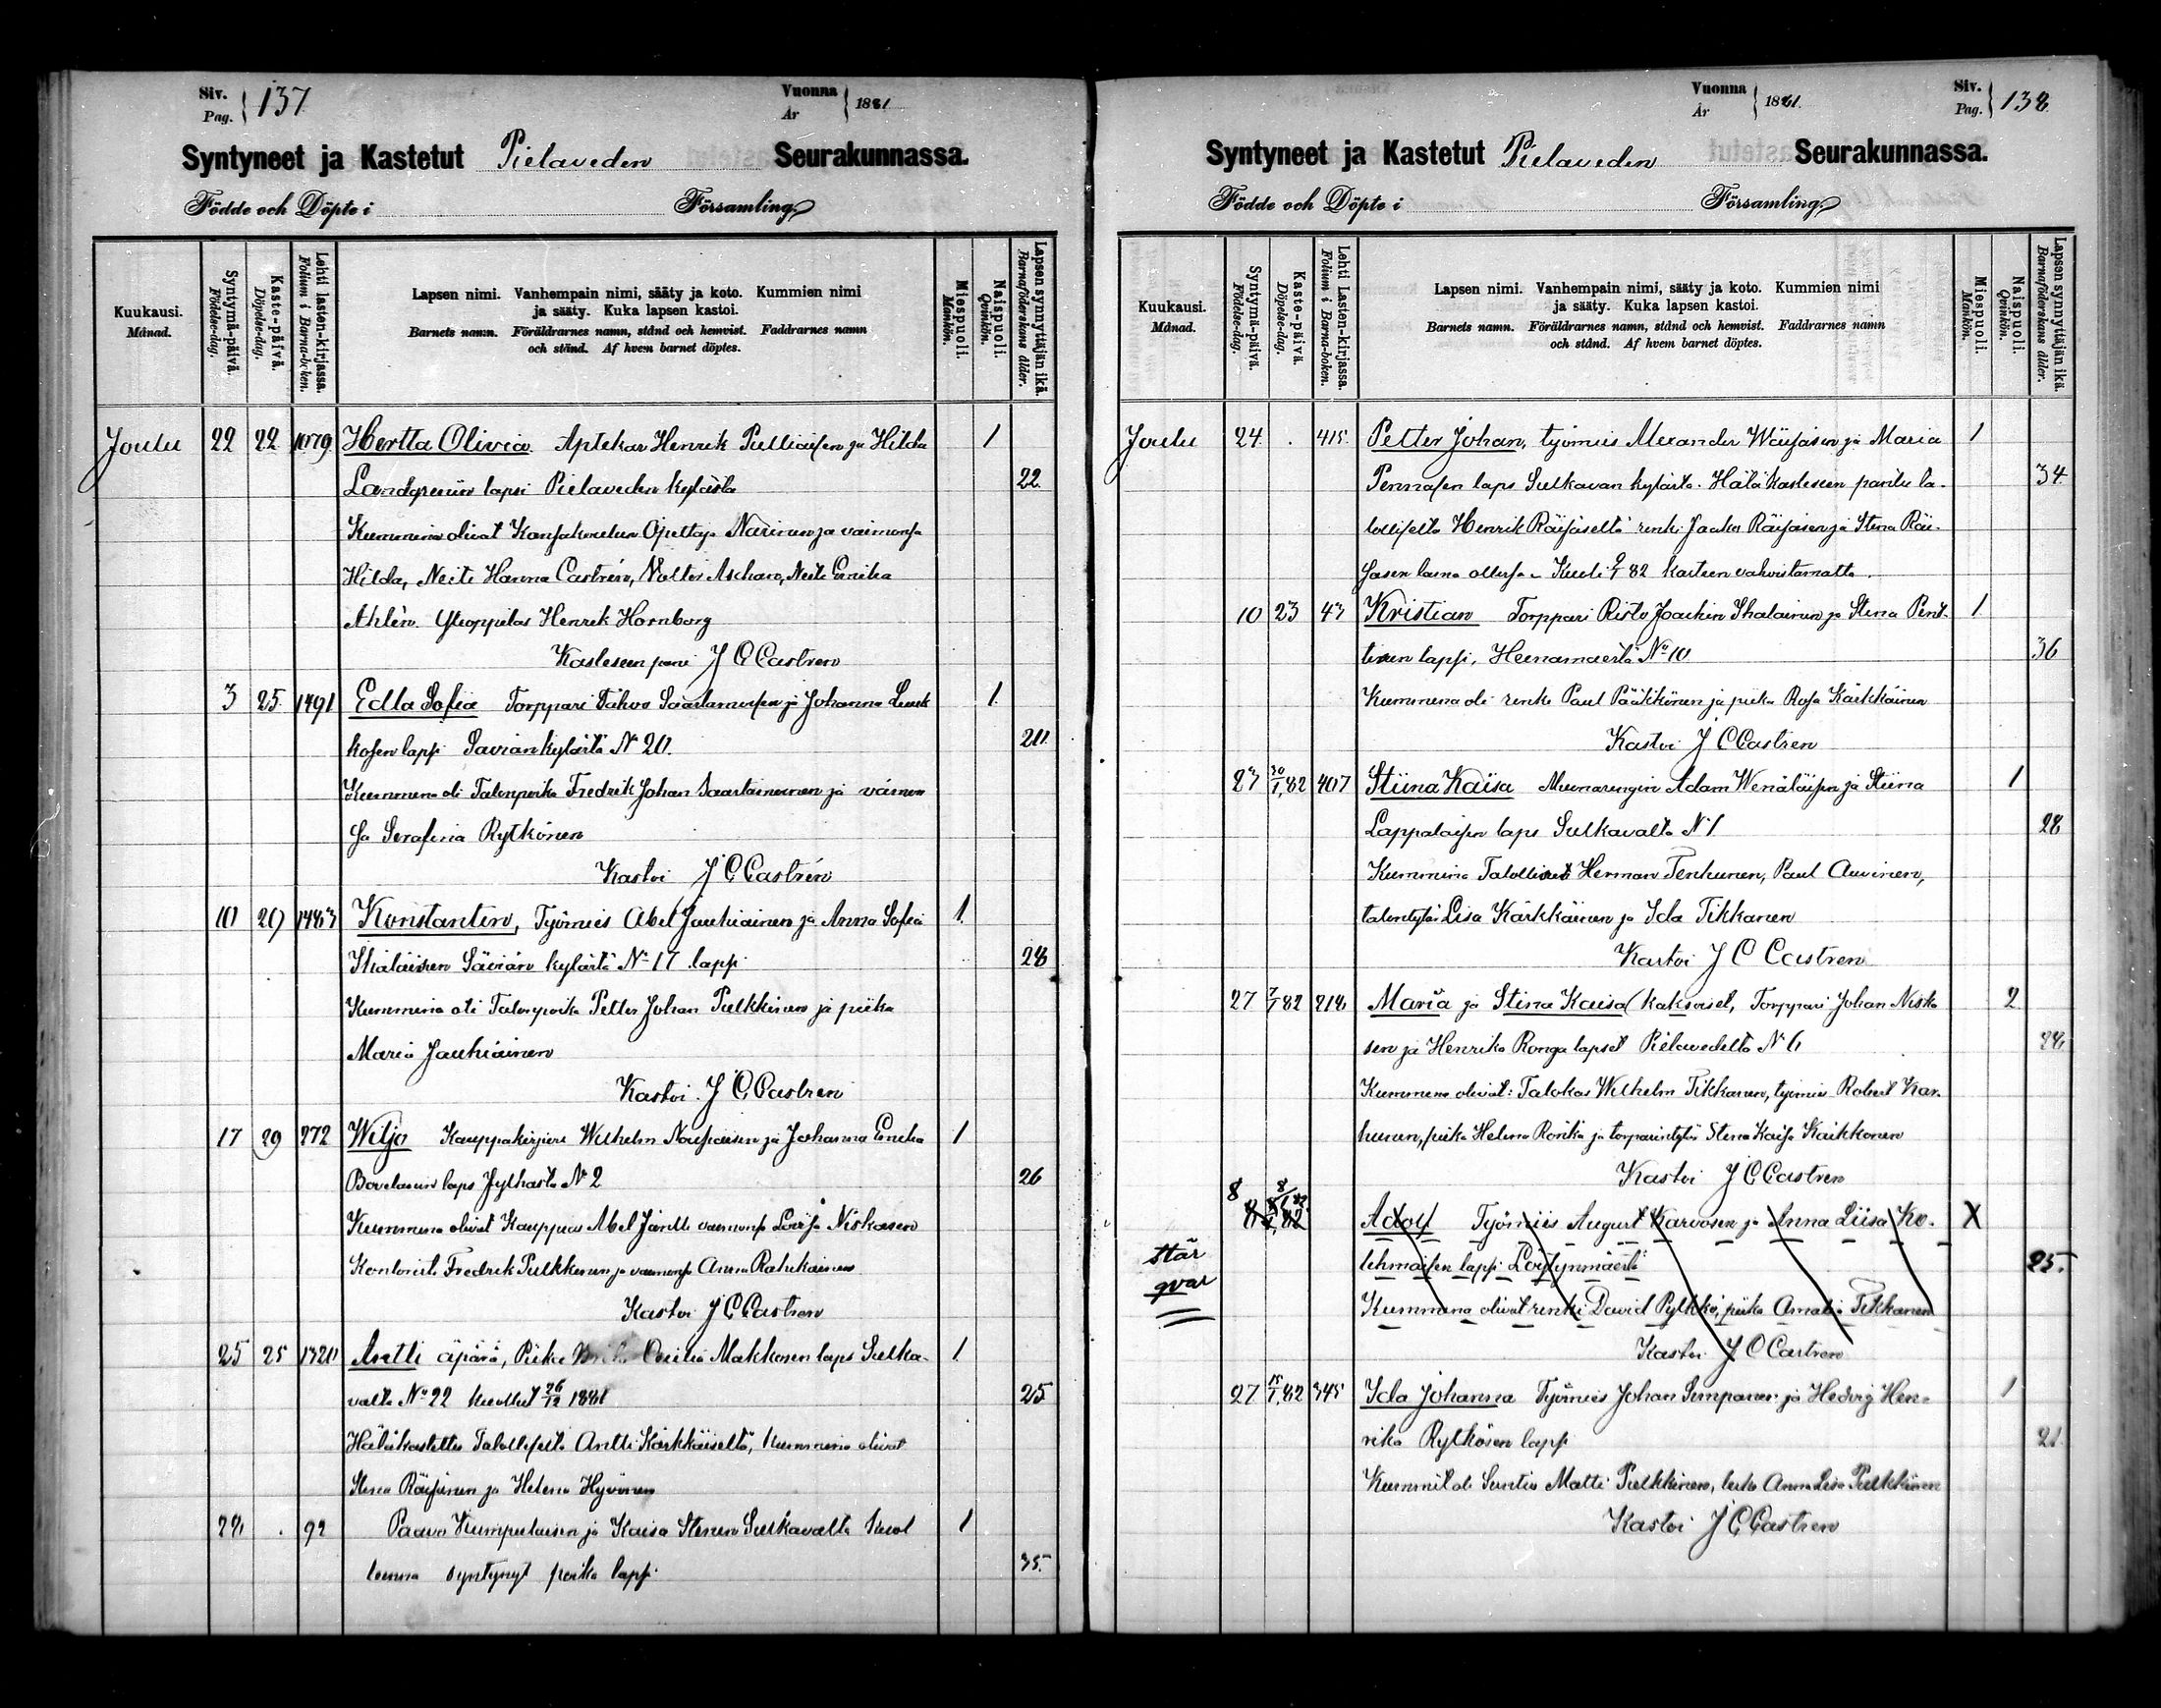 Siv. Pag. 137 Vuonna År 1881
Syntyneet ja Kastetut Pielaveden Seurakunnassa.
Födde och Döpte i Församling
Kuukausi. Månad.
Syntymä-päivä. Födelse-dag.
Kaste-päivä. Döpelse-dag.
Lehti lasten-kirjassa. Folium i Barna-boken.
Lapsen nimi. Vanhempain nimi, sääty ja koto. Kummien nimi
ja sääty. Kuka lapsen kastoi.
Barnets namn. Föräldrarnes namn, stånd och hemvist. Faddrarnes namn
och stånd. Af hvem barnet döptes.
Miespuoli. Mankön.
Naispuoli. Qvinkön.
Lapsen synnyttäjän ikä. Barnaföderskans ålder.
Joulu 22 22 1079 Hertta Olivia. Aptekar Henrik Pulliaisen ja Hilda 1
Landgrenin lapsi Pielaveden kylästä 22
Kummina olivat Kansakoulun Opettaja Närinen ja vaimonsa
Hilda, Neiti Hanna Castrén, Volter Aschan, Neiti Emika
Ahlén. Ylioppilas Henrik Hornborg
Kasteseen pani J C Castren
3 25 1491 Edla Sofia Torppari Tahvo Saastamoisen ja Johanna Leusk 1
kosen lapsi Saviankylästä N 20. 20
Kummina oli Talonpoika Fredrik Johan Saastamoinen ja vaimon
sa Serafina Rytkönen
Kastoi J C Castrén
10 29 1483 Konstantin, Työmies Abel Jauhiainen ja Anna Sofia 1
Ihalaisen Säviän kylästä No 17 lapsi 28
Kummina oli Talonpoika Petter Johan Pulkkinen ja piika
Maria Jauhiainen
Kastoi J C Castren
17 29 272 Wiljo Kauppakirjuri Wilhelm ja Johanna Emelia 1
laps Jylhästä No 2 26
Kummina olivat Kauppias Abel Jäntti vaimonsa Lovisa Niskasen
Kontoristi Fredrik Pulkkinen ja vaimonsa Anna Rahikainen
Kastoi J C Castren
25 25 1320 Antti äpärä, Piika Cecilia Makkosen laps Sulka- 1
valta No 22 kuollut 26/12 1881 25
Hätäkastettu Talolliselta Antti Kärkkäiseltä, kummina olivat
Stina Räisänen ja Helena Hyvönen
28 . 92 Paavo Kumpulaisen ja Kaisa Stenin Sulkavalta kuol 1
leena syntynyt poika lapsi 35.
Vuonna År 1881. Siv. Pag. 138
Syntyneet ja Kastetut Pielaveden Seurakunnassa.
Födde och Döpte i Församling
Kuukausi. Månad.
Syntymä-päivä. Födelse-dag.
Kaste-päivä. Döpelse-dag.
Lehti Lasten-kirjassa. Folium i Barna-boken.
Lapsen nimi. Vanhempain nimi, sääty ja koto. Kummien nimi
ja sääty. Kuka lapsen kastoi.
Barnets namn. Föräldrarnes namn, stånd och hemvist. Faddrarnes namn
och stånd. Af hvem barnet döptes.
Miespuoli. Mankön.
Naispuoli. Qvinkön.
Lapsen synnyttäjän ikä. Barnaföderskans ålder.
Joulu 24. . 415. Petter Johan, työmies Alexander Wäisäsen ja Maria 1
Pennasen laps Sulkavan kylästä. Hätä kasteseen pantu ta- 34
lolliselta Henrik Räisäseltä renki Jaako Räisäsen ja Stina Räi-
säsen läsnä ollessa - Kuoli 9/1 82 kasteen vahvistamatta.
10 23 43 Kristian Torppari Risto Joackim Ihalainen ja Stina Pent- 1
tisen lapsi, Heinamäestä No 10 36
Kummina oli renki Paul Pääkkönen ja piika Rosa Kärkkäinen
Kastoi J C Castren
23 30/1,82 407 Stiina Kaisa Muonarengin Adam Wenäläisen ja Stiina 1
Lappalaisen laps Sulkavalta N 1 28
Kummina Talolliset Herman Tenhunen, Paul Auvinen,
talontytär Lisa Kärkkäinen ja Ida Tikkanen
Kastoi J C Castren
27 7/1 82 218 Maria ja Stina Kaisa (kaksoiset, Torppari Johan Niska 2
sen ja Henrika Ronga lapset Pielavedelta N 6 28
Kummina olivat: Talokas Wilhelm Tikkanen, työmies Robert Kar-
hunen, piika Helena Ronika ja torparintytär Stina Kaisa Kaikkonen
Kastoi J C Castren
8 8/1 82 Adolf Työmiis August Karvosen ja Anna Liisa Ko- X
lehmaisen lapsi Löytynmäestä 25.
Kummina olivat renki David Pylkkö, piika Amalia Tikkanen
Kastoi J C Castren
står
qvar
27 15/1,82 345 Ida Johanna Työmies Johan Simpanen ja Hedvig Hen- 1
rika Rytkösen lapsi 21
Kummit oli Suntio Matti Pulkkinen, leski Anna Lisa Pulkkinen
Kastoi J C Castren